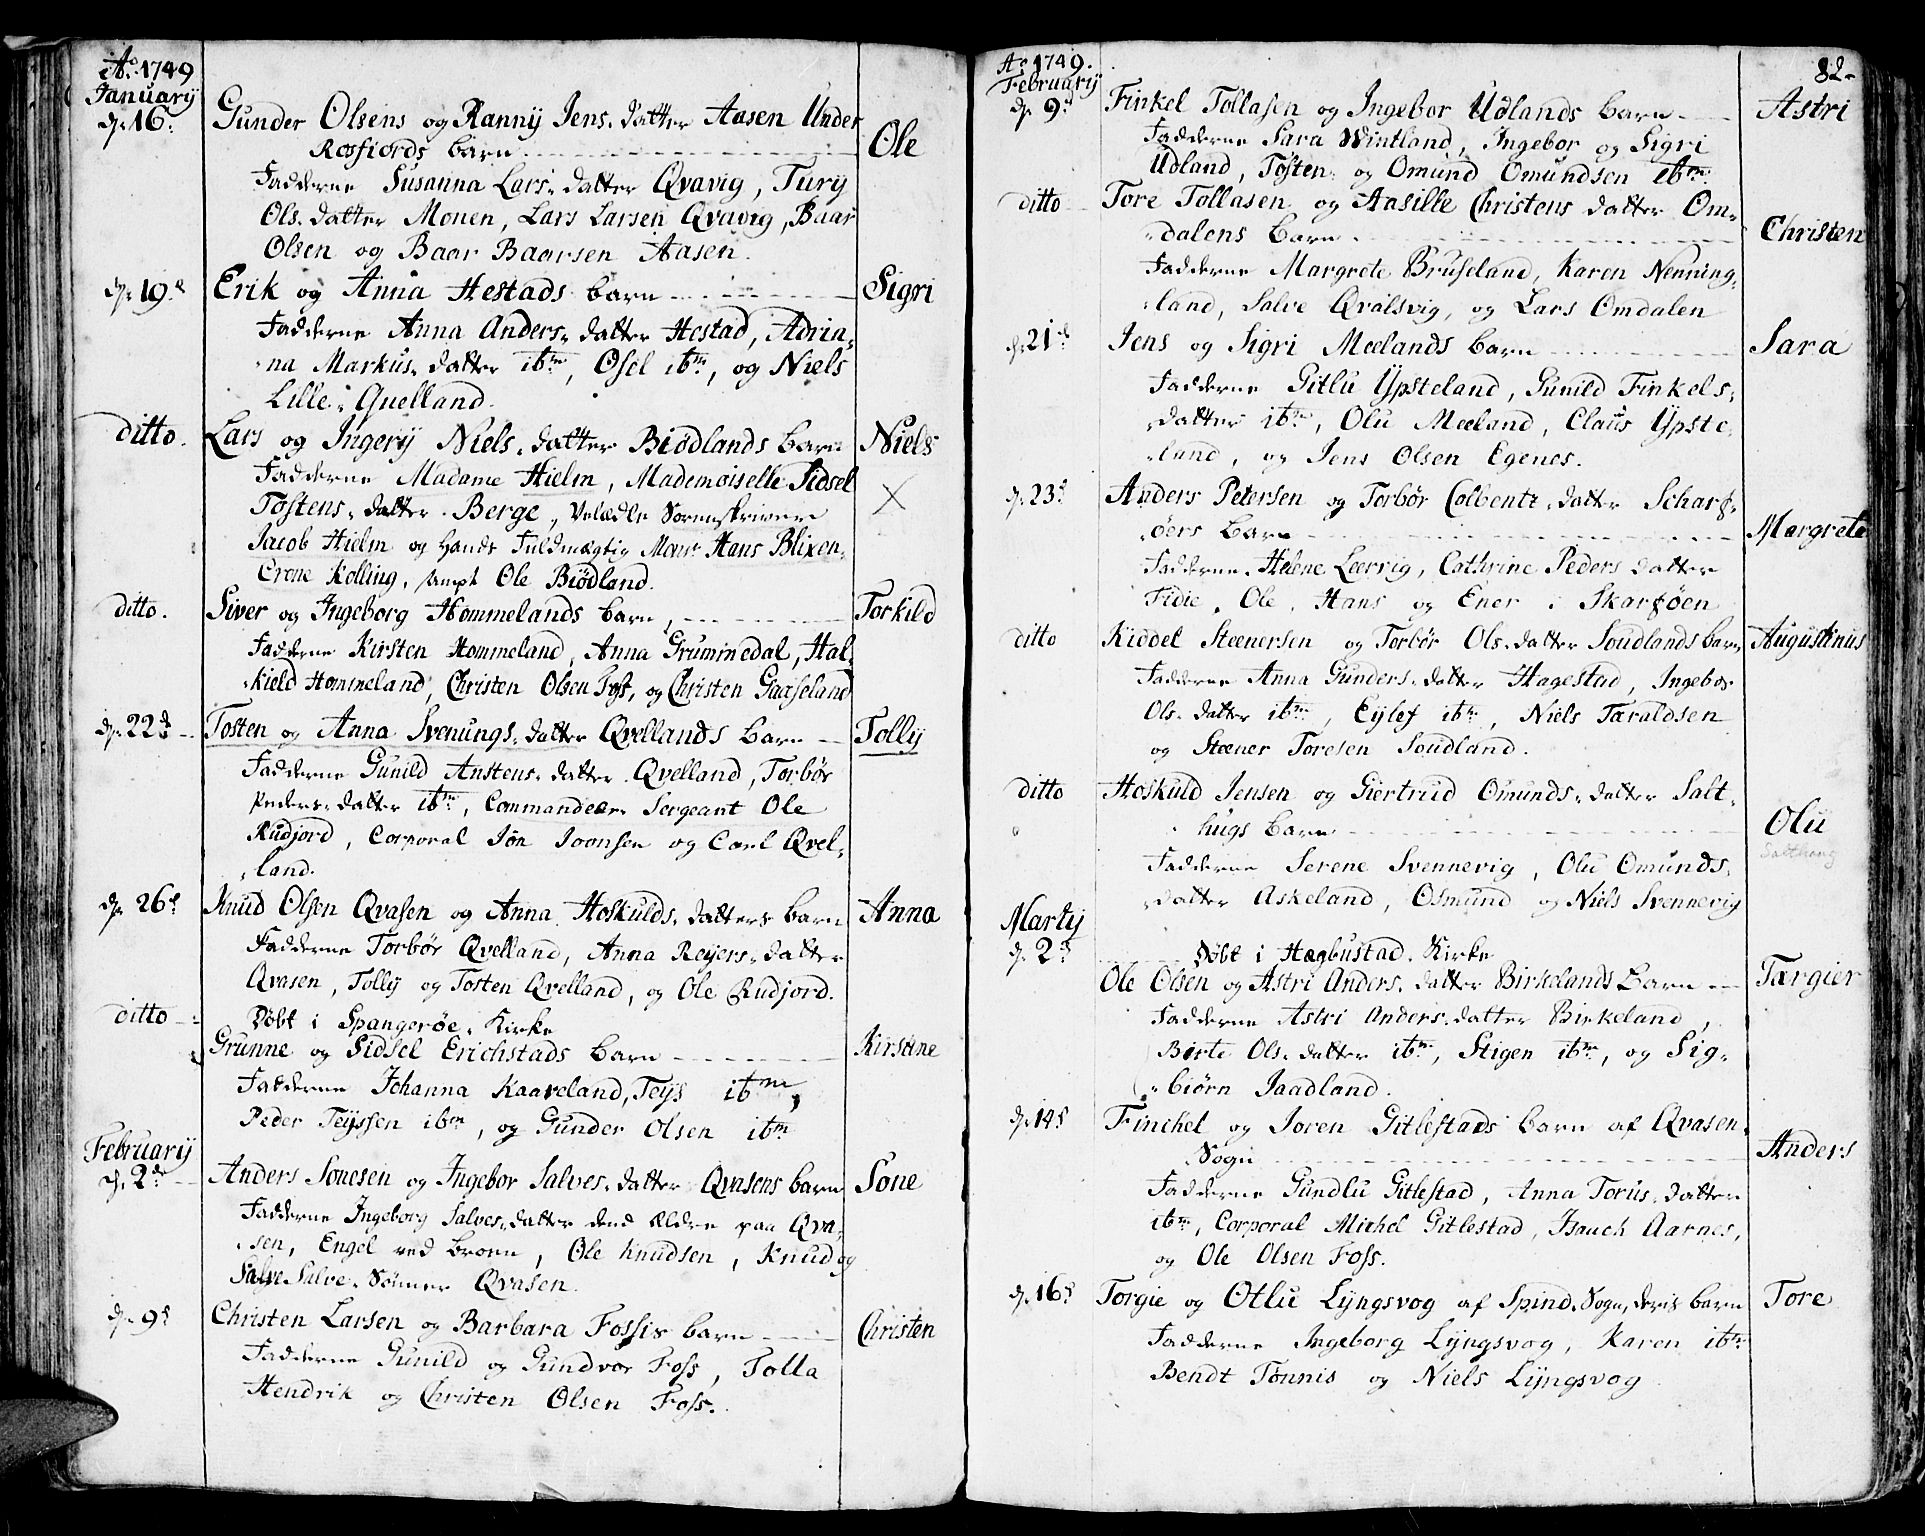 Ao. 1749
Januarij
d. 16.
Gunder Olsens og Ranny Jens. datter Aasen Under
Rosfiords barn
Ole
Fadderne Susanna Lars. datter Qvavig, Tury
Ols. datter Monen, Lars Larsen Qvavig, Baar
Olsen og Baar Baarsen Aasen.
d. 19.
Erik og Anna Hestads barn
Sigri
Fadderne Anna Anders. datter Hestad, Adria-
na Markus. datter ibm, Osel ibm, og Niels
Lille. Quelland.
ditto.
Lars og Ingerij Niels. datter Biødlands barn
Niels
Fadderne Madame Hielm, Mademoiselle Sidsel
Tostens. datter Berge, Velædle Sorenskriver
Jacob Hielm og Hands Fuldmægtig Monsr Hans Blixen-
Crone Kolling, sampt Ole Biødland.
ditto.
Siver og Ingeborg Hommelands barn,
Torkild
Fadderne Kirsten Hommeland, Anna Grummedal, Hal-
kield Hommeland, Christen Olsen Foss, og Christen Gaaseland
d. 22d
Tosten og Anna Svenungs. datter Qvellands barn
Tollij
Fadderne Gunild Anstens. datter Qvelland, Torbør
Peders. datter ibm, Commandeer Sergeant Ole
Rudjord, Corporal Jøn Joonsen og Carl Qvel-
land.
d. 26
Knud Olsen Qvasen og Anna Hoskulds. datters barn
Anna
Fadderne Torbør Qvelland, Anna Reyers. datter
Qvasen, Tollij og Tosten Qvelland, og Ole Rudjord.
ditto
Døbt i Spangerøe. Kirke
Grunne og Sidsel Erichstads barn
Kirstine
Fadderne Johanna Kaaveland, Teys ibm,
Peder Teyssen ibm, og Gunder Olsen ibm
Februarij
d. 2d
Anders Sonesen og Ingebor Salves. datter Qvasens barn
Sone
Fadderne Ingeborg Salves. datter dend Ældre paa Qva-
sen, Engel ved broen, Ole Knudsen, Knud og
Salve Salve. Sønner Qvasen.
d. 9d
Christen Larsen og Barbara Fossis barn
Christen
Fadderne Gunild og Gundvor Foss, Tolla
Hendrik og Christen Olsen Foss.
Ao 1749.
Februarij
82.
d. 9d
Finkel Tollasen og Ingebor Udlands barn
Astri
Fadderne Sara Wintland, Ingebor og Sigri
Udland, Tosten og Omund Omundsen ibm
ditto
Tore Tollasen og Aasille Christens datter Om-
dalens barn
Christen
Fadderne Margrete Bruseland, Karen Nenning-
land, Salve Qvalsvig, og Lars Omdalen
d. 21d
Jens og Sigri Meelands barn
Sara
Fadderne Gitlu Ypsteland, Gunild Finkels-
datter ibm, Olu Meeland, Claus Ypste-
land, og Jens Olsen Egenes.
d. 23d
Anders Petersen og Torbør Colbente. datter Scharf-
öers barn
Margrete
Fadderne. Helene Leervig, Cathrine Peders datter
Fidie, Ole, Hans og Ener i Skarføen
ditto
Kiddel Steenersen og Torbør Ols. datter Soudlands barn
Augustinus
Fadderne Anna Gunders. datter Hagestad, Ingebor
Ols. datter ibm, Eylef ibm, Niels Taraldsen
og Stener Toresen Soudland.
ditto
Hoskuld Jensen og Giertrud Omunds. datter Salt-
hugs barn
Olu
Salthaug
Fadderne Serene Svennevig, Olu Omunds-
datter Askeland, Osmund og Niels Svennevig
Martij
d. 2d
Døbt i Hægbustad. Kirke
Ole Olsen og Astri Anders. datter Birkelands barn
Targier
Fadderne Astri Anders. datter Birkeland,
Birte Ols. datter ibm, Stigen ibm, og Sig-
biørn Jaadland.
d. 14d
Finchel og Joren Gitlestads barn af Qvasen-
Sogn
Anders
Fadderne Gundlu Gitlestad, Anna Torus. datter
ibm, Corporal Michel Gitlestad, Isauch Aarnes,
og Ole Olsen Foss.
d. 16d
Torgie og Otlu Lyngsvog af Spind. Sogn, deris barn
Tore
Fadderne Ingeborg Lyngsvog, Karen ibm
Bendt Tønnis og Niels Lyngsvog